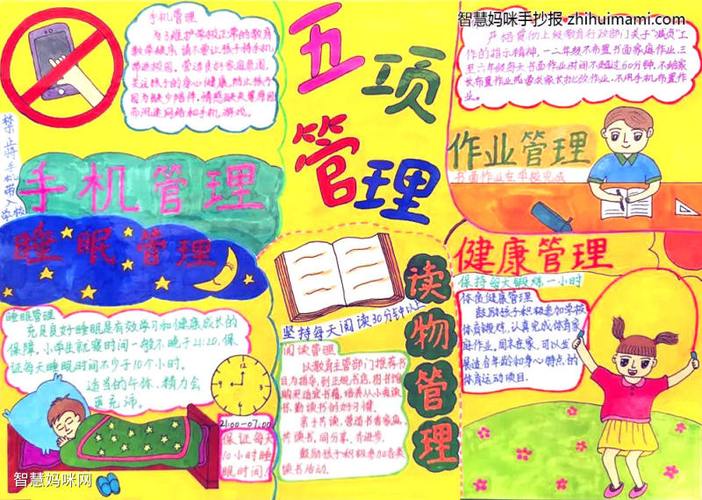 智慧妈咪手抄报 zhihuimami.com
五项
管理
手机管理
为了维护学校正常的教育
教学秩序，请不要让孩子将手机
带进校园。营造良好家庭氛围，
关注孩子的身心健康，防止孩子
因为缺少陪伴、情感缺失等原因
而沉迷网络和手机游戏。
禁止将手机带入学校
手机管理
严格贯彻上级教育行政部门关于“减负”工
作的指示精神，一二年级不布置书面家庭作业，三
至六年级每天书面作业时间不超过60分钟，不给家
长布置作业或要求家长批改作业，不用手机布置作
业。
作业管理
书面作业在学校完成
睡眠管理
睡眠管理
充足良好睡眠是有效学习和健康成长的
保障。小学生就寝时间一般不晚于21:20，保
证每天睡眠时间不少于10个小时。
适当的午休，精力会
更充沛。
21:00-07:00
保证每天
10小时睡
眠时间
坚持每天阅读30分钟以上
阅读管理
以教育主管部门推荐书
目为指导，到正规书店、图书馆
购买适宜书籍，培养从小爱读
书、勤读书的好习惯。
亲子共读，营造书香家庭，
共读书、同分享、齐进步。
鼓励孩子积极参加各类
读书活动。
读物管理
健康管理
保持每天锻炼一小时
体质健康管理
鼓励孩子积极参加学校
体育锻炼，认真完成体育家
庭作业。周末在家，可以坐
最适合年龄和身心特点的
体育运动项目。
智慧妈咪网